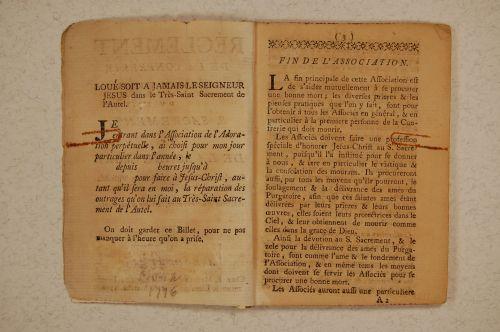 LOUÉ SOIT A JAMAIS LE SEIGNEUR
JESUS dans le Très-Saint Sacrement de
l'Autel.
JE
entrant dans l'Association de l'Adora-
tion perpétuelle, ai choisi pour mon jour
particulier dans l'année, le
depuis heures jusqu'à
pour faire à Jesus-Christ, au-
tant qu'il sera en moi, la réparation des
outrages qu'on lui fait au Très-Saint Sacre-
ment de l'Autel.
On doit garder ce Billet, pour ne pas
manquer à l'heure qu'on a prise.
1776
(3)
FIN DE L'ASSOCIATION.
LA fin principale de cette Association est
de s'aider mutuellement à se procurer
une bonne mort; les diverses prieres & les
pieuses pratiques que l'on y fait, sont pour
l'obtenir à tous les Associés en général, & en
particulier à la premiere personne de la Con-
frerie qui doit mourir.
Les Associés doivent faire une profession
spéciale d'honorer Jesus-Christ au S. Sacre-
ment, puisqu'il l'a institué pour se donner
à nous, & être en particulier le viatique &
la consolation des mourans. Ils procureront
aussi, par tous les moyens qu'ils pourront, le
soulagement & la délivrance des ames du
Purgatoire, afin que ces saintes ames étant
délivrées par leurs prieres & leurs bonnes
œuvres, elles soient leurs protectrices dans le
Ciel, & leur obtiennent de mourir comme
elles dans la grace de Dieu.
Ainsi la devotion au S. Sacrement, & le
zele pour la délivrance des ames du Purga-
toire, sont comme l'ame & le fondement de
l'Association, & en même tems les moyens
dont doivent se servir les Associés pour se
procurer une bonne mort.
Les Associés auront aussi une particuliere
A 2